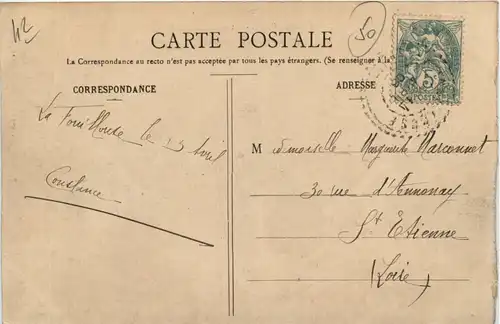 42
50
CARTE POSTALE
La Correspondance au recto n'est pas acceptée par tous les pays étrangers. (Se renseigner à la
CORRESPONDANCE
ADRESSE
5
La le 23 Avril
Constance
Mademoiselle Marguerite Marconnet
30 rue d'Annonay
St Etienne
(Loire)